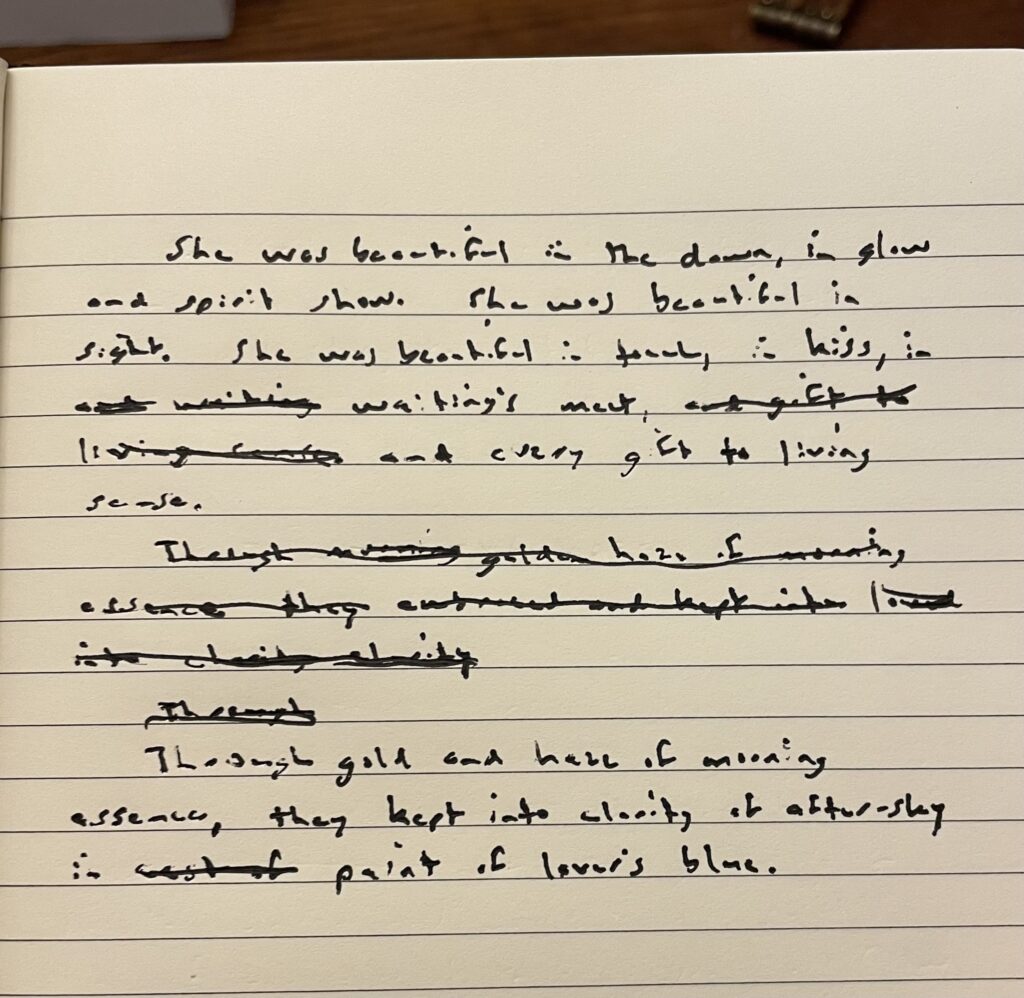 She was beautiful in the dawn, in glow
and spirit show. She was beautiful in
sight. She was beautiful in touch, in kiss, in
and waiting waiting's meet, and gift to
living sense and every gift to living
sense.
Through morning golden haze of morning
essence they embraced and kept into loved
into clarity clarity
Through
Through gold and haze of morning
essence, they kept into clarity of after-sky
in cast of paint of lover's blue.